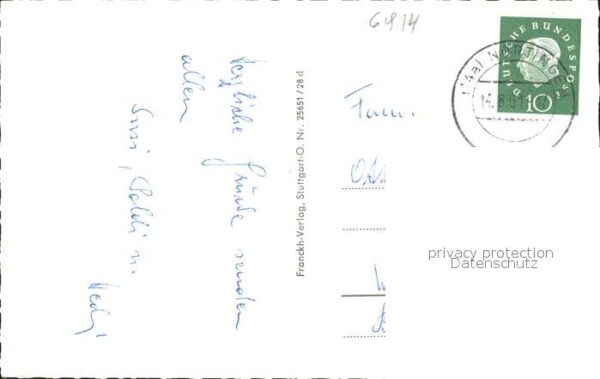 6914
Herzliche Grüße senden
allen
Susi, Poldi u.
Hedi
Franckh-Verlag, Stuttgart-O. Nr. 25651/28 d
Fam.
DEUTSCHE BUNDESPOST
10
(14a) NÜRTINGEN
14.8.61
privacy protection
Datenschutz